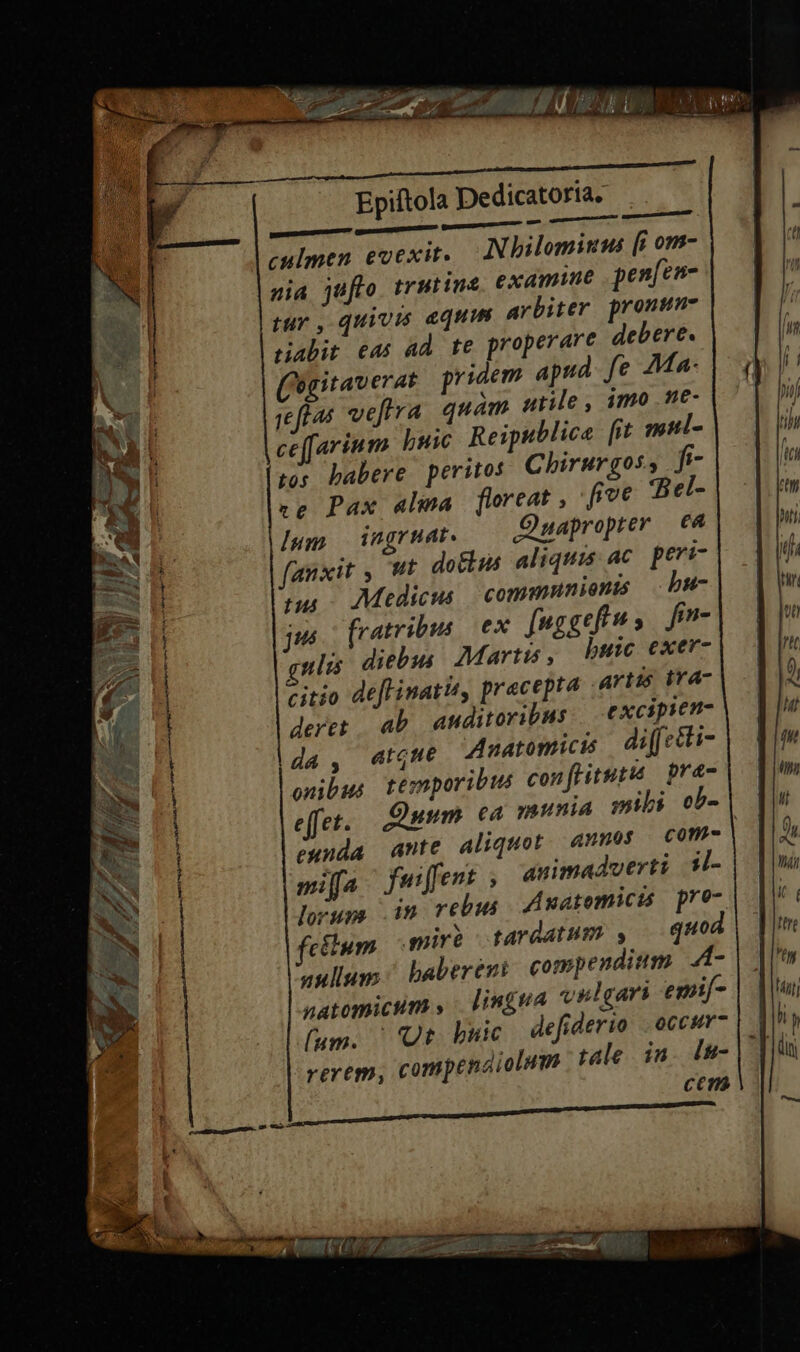 Epiſtola Dedicatoria.
culmen evexit. Nhilominus ſi om-
nia juſto trutinæ examine penſen-
tur, quivis æquus arbiter pronun-
tiabit eas ad te properare debere.
Cogitaverat pridem apud ſe Ma-
jeſtas veſtra quàm utile, imo ne-
ceſſarium huic Reipublicæ ſit mul-
tos habere peritos Chirurgos, ſi-
ve Pax alma floreat, ſive Bel-
lum ingruat. Quapropter ea
ſanxit, ut doctus aliquis ac peri-
tus Medicus communionis hu-
jus fratribus ex ſuggeſtu, ſin-
gulis diebus Martis, huic exer-
citio deſtinatis, præcepta artis tra-
deret ab auditoribus excipien-
da, atque Anatomicis diſſecti-
onibus temporibus conſtitutis præ-
eſſet. Quum ea munia mihi ob-
eunda ante aliquot annos com-
miſſa fuiſſent, animadverti il-
lorum in rebus Anatomicis pro-
fectum mirè tardatum, quod
nullum haberent compendium A-
natomicum, lingua vulgari emiſ-
ſum. Ut huic deſiderio occur-
rerem, compendiolum tale in lu-
cem